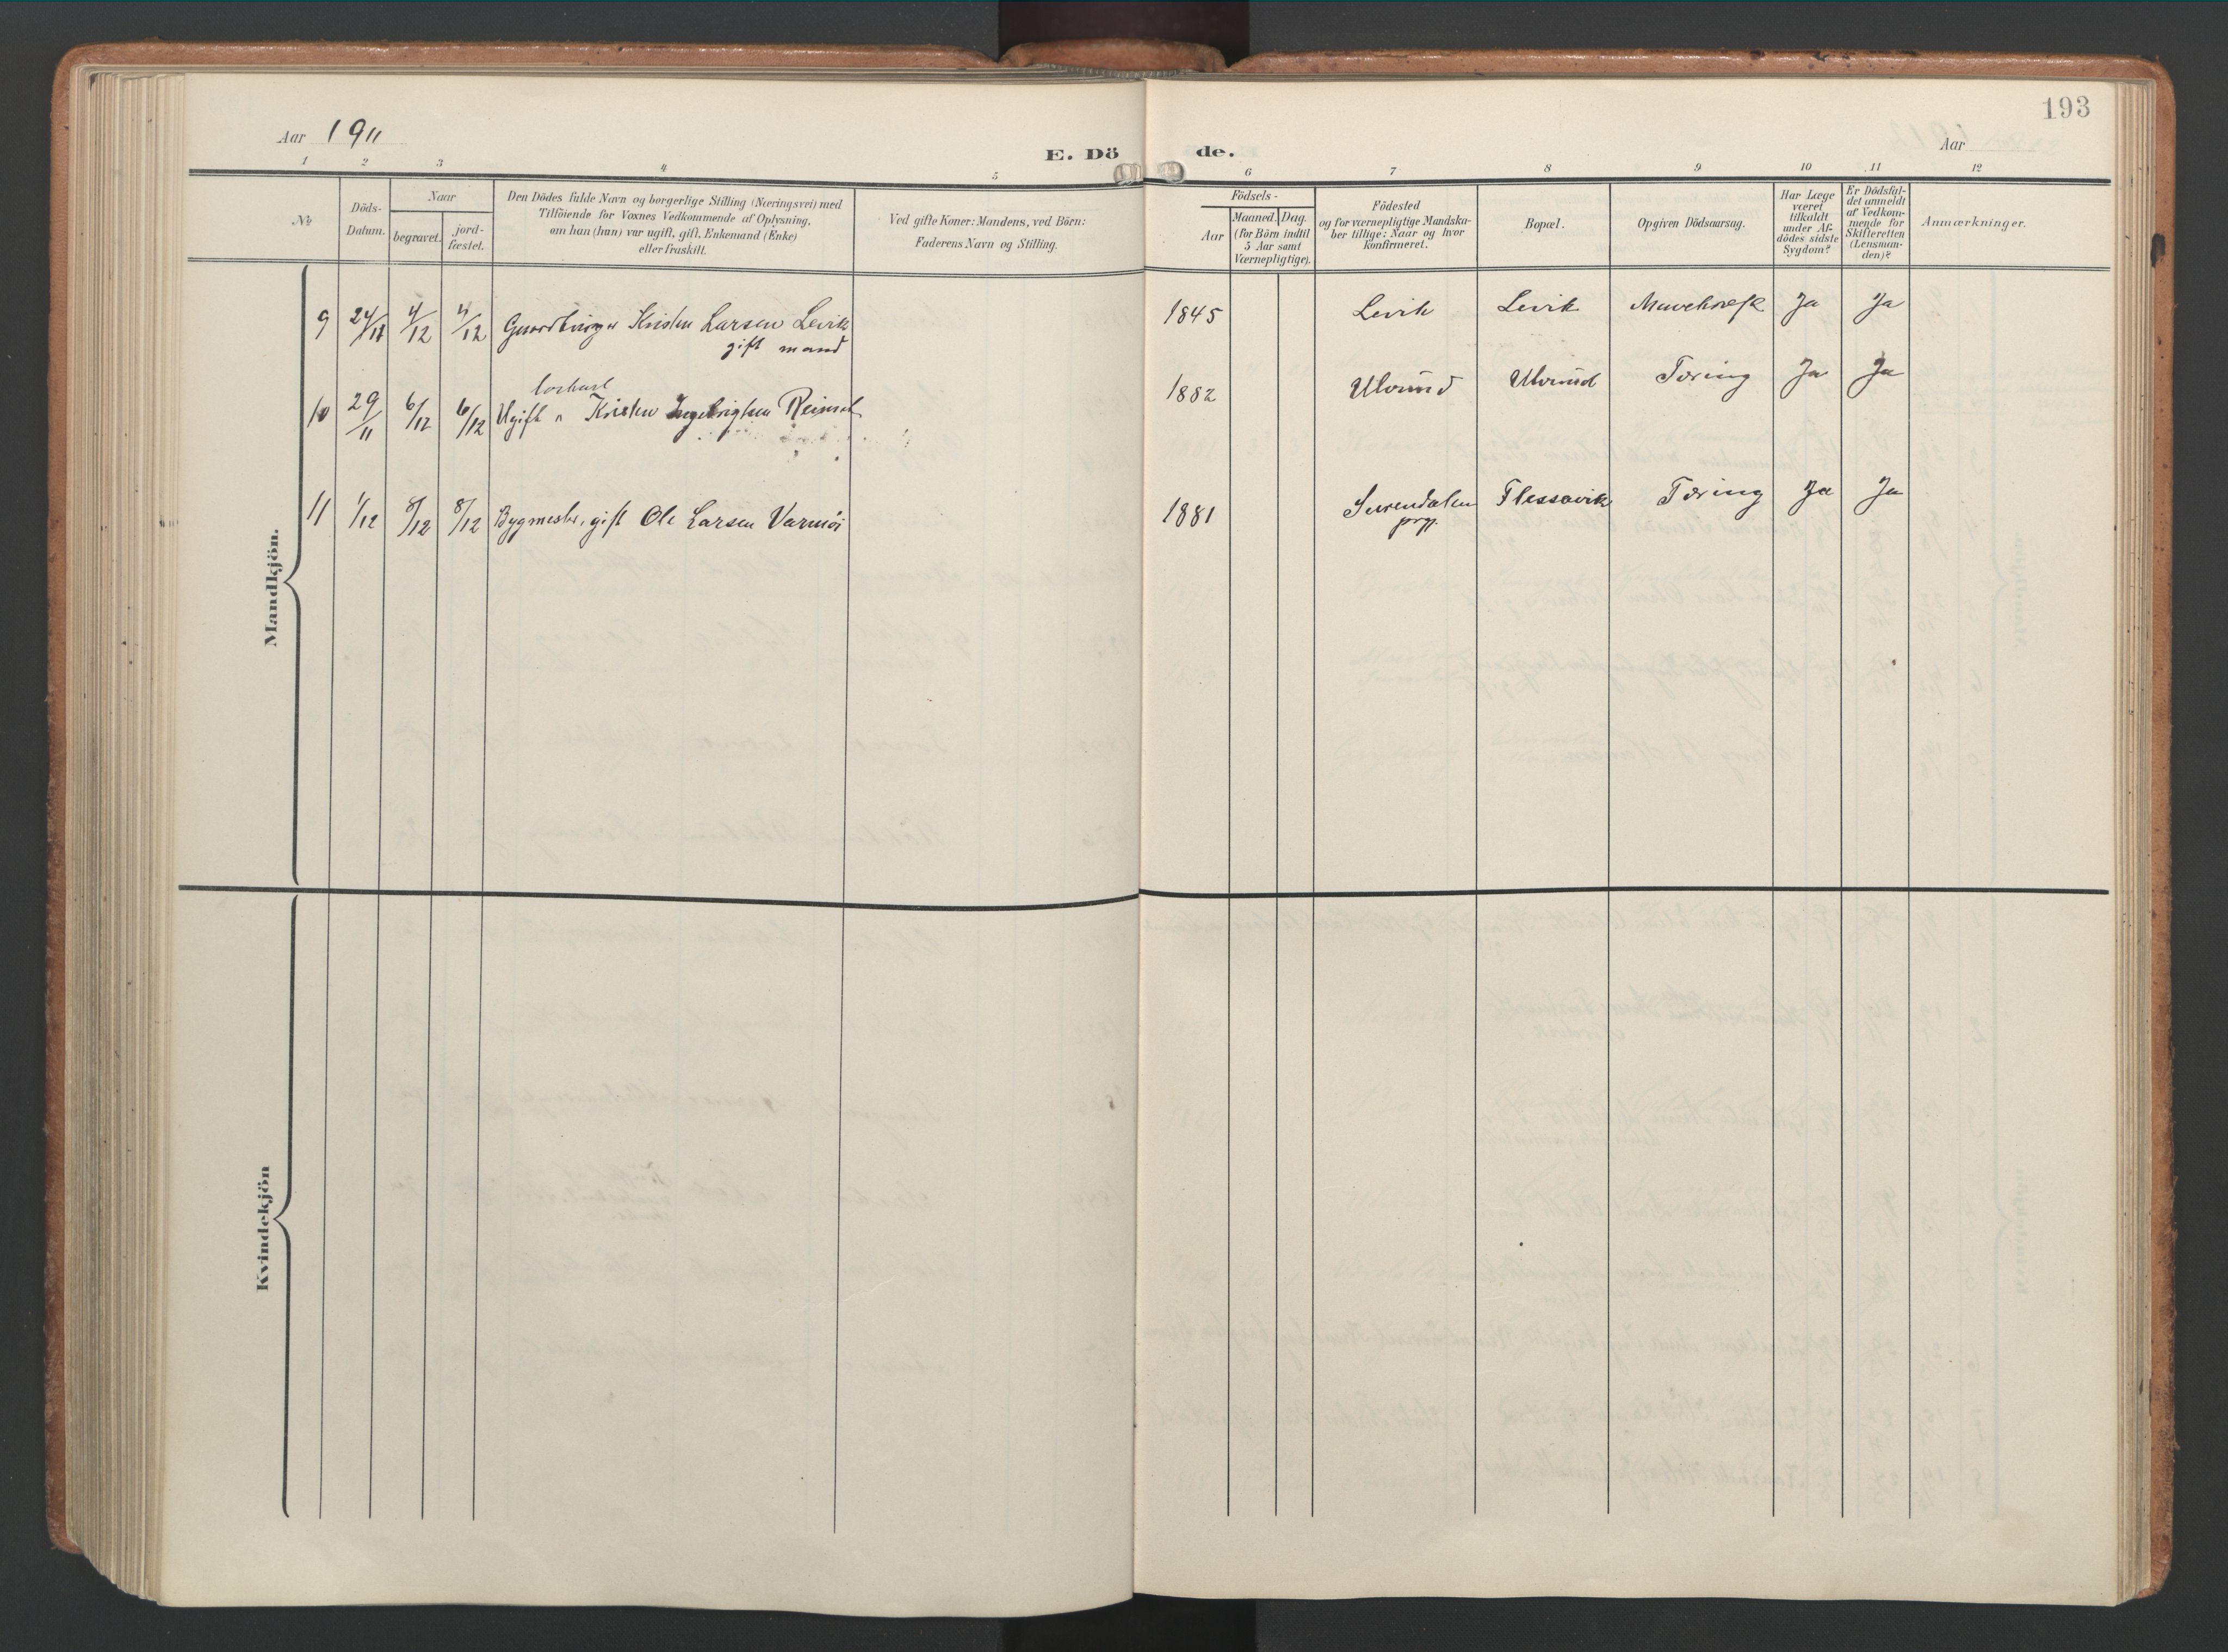 193
Aar 1911
E. Dö de.
Aar
1 2 3 4 5 6 7 8 9 10 11 12
No
Döds-
Datum.
Naar
begravet.
jord-
fæstet.
Den Dödes fulde Navn og borgerlige Stilling (Næringsvei) med
Tilföiende for Voxnes Vedkommende af Oplysning,
om han (hun) var ugift, gift, Enkemand (Enke)
eller fraskilt.
Ved gifte Koner: Mandens, ved Börn:
Faderens Navn og Stilling.
Födsels-
Aar
Maaned. Dag.
(for Börn indtil
5 Aar samt
Værnepligtige).
Födested
og for værnepligtige Mandska-
ber tillige: Naar og hvor
konfirmeret.
Bopæl.
Opgiven Dödsaarsag.
Har Læge
været
tilkaldt
under Af-
dödes sidste
Sygdom?
Er Dödsfal-
det anmeldt
af Vedkom-
mende for
Skifteretten
(Lensman-
den)?
Anmærkninger.
Mandkjön.
9 24/11 4/12 4/12 Gaardbruger Kristen Larsen Levik 1845 Levik Levik Ja Ja
gift mand
10 29/11 6/12 6/12 Ugift Kristen Ingebrigtsen 1882 Ulvund Ulvund Tæring Ja Ja
11 1/12 8/12 8/12 Bygmester, gift Ole Larsen 1881 Surendalen Flessavik Tæring Ja Ja
prgj.
Kvindekjön